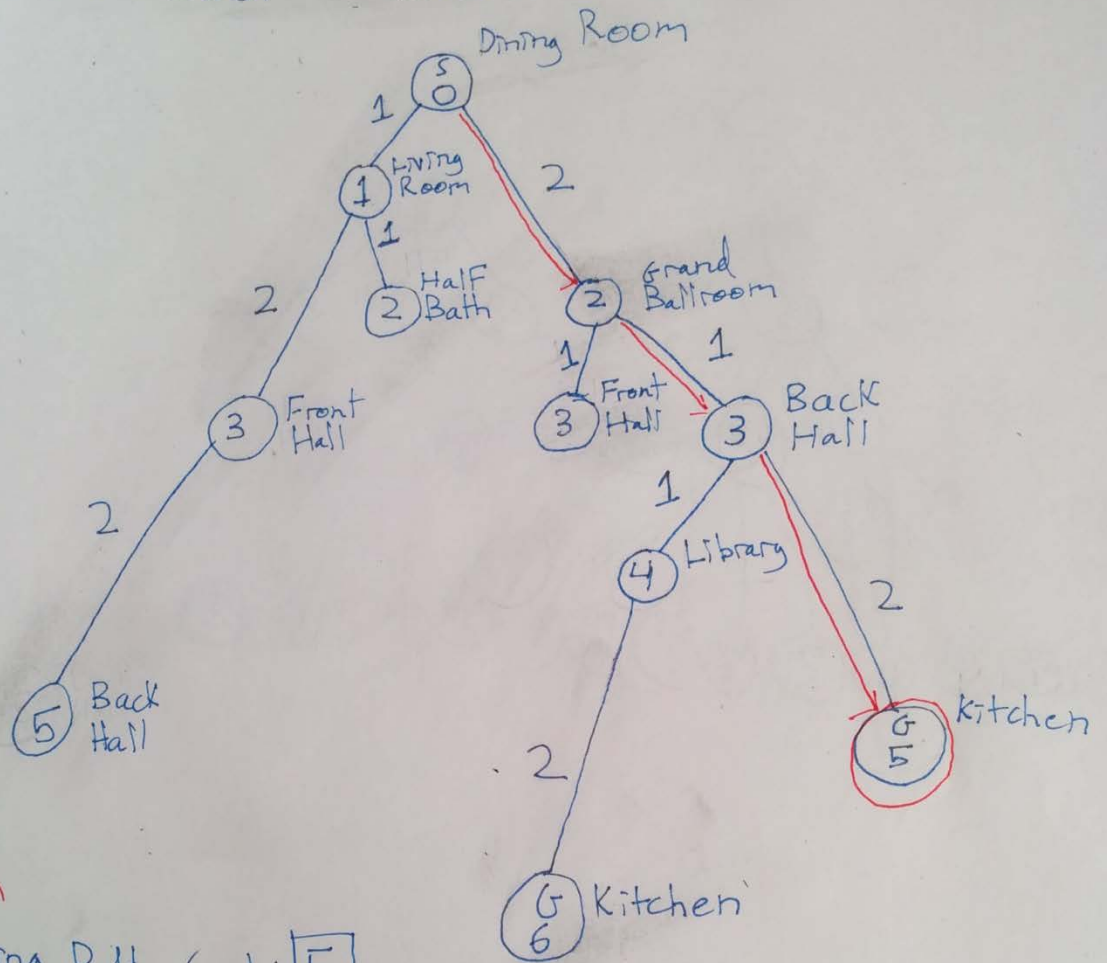 Dining Room
S
0
1
2
Living
Room
1
1
Half
Bath
2
2
Grand
Ballroom
2
1
1
Front
Hall
3
Front
Hall
3
Back
Hall
3
2
1
Library
4
2
Back
Hall
5
Kitchen
G
5
2
Kitchen
G
6